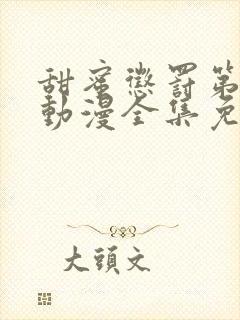 甜蜜懲罰第
動漫全集免
大頭文